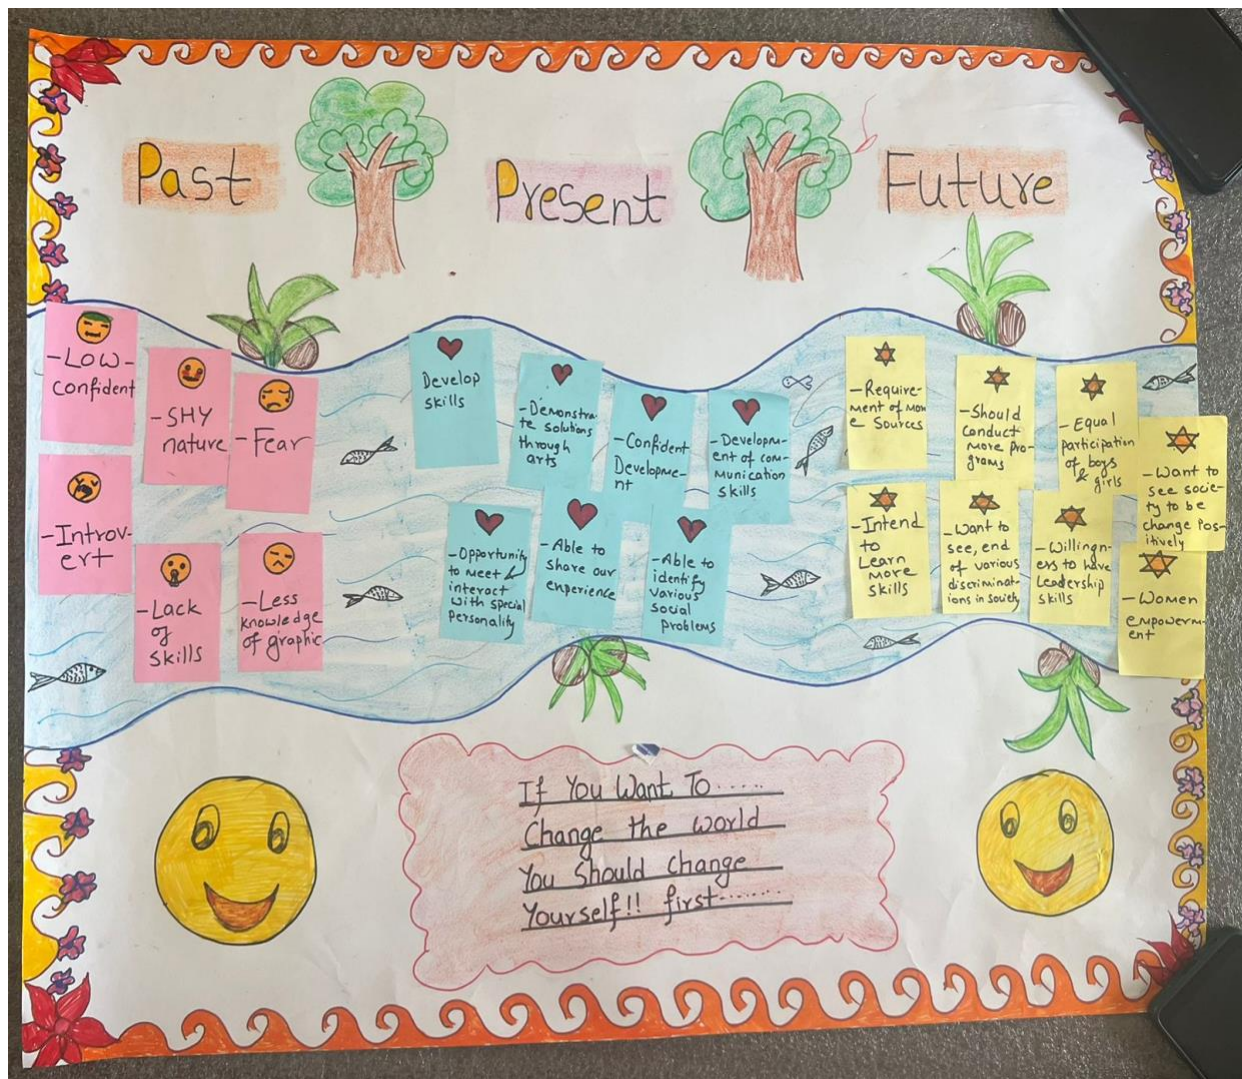 Past
Present
Future
-Low-
confident
-SHY
nature
-Fear
-Introv-
ert
-Lack
of
skills
-Less
knowledge
of graphic
Develop
skills
-Demonstra-
te solutions
through
arts
-Confident
Developme-
nt
-Developm-
ent of com-
munication
skills
-Opportunity
to meet &
interact
with special
personality
-Able to
share our
experience
-Able to
identify
various
social
problems
-Require-
ment of mor
e Sources
-Should
conduct
more pro-
grams
-Equal
participation
of boys
& girls
-Want to
see socie-
ty to be
change Pos-
itively
-Intend
to
Learn
more
skills
-Want to
see, end
of various
discriminat-
ions in society
-Willingn-
ess to have
Leadership
skills
-Women
empowerm-
ent
If You Want To......
Change the world
You should change
Yourself!! first.......